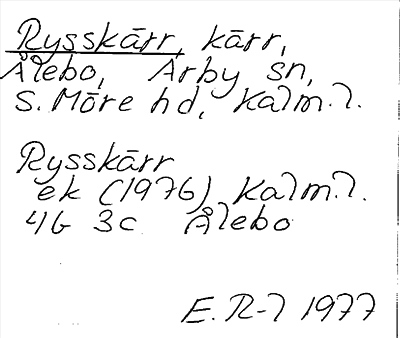 Rysskärr, kärr,
Ålebo, Arby sn,
S. Möre hd, Kalm.l.
Rysskärr
ek (1976) Kalm.l.
4G 3c Ålebo
E. R-l 1977